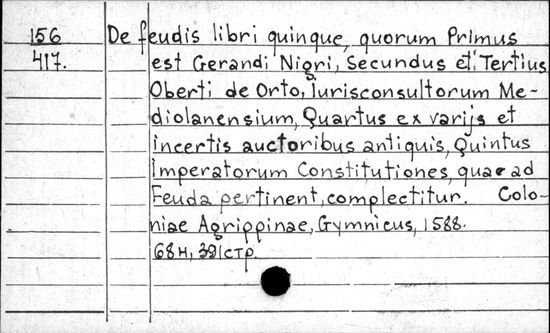 156 De feudis libri quinque, quorum Primus
417. est Gerandi Nigri, Secundus et Tertius
Oberti de Orto, iurisconsultorum Me-
diolanensium, Quartus ex varijs et
incertis auctoribus antiquis, Quintus
Imperatorum Constitutiones, quae ad
Feuda pertinent, complectitur. Colo-
niae Agrippinae, Gymnicus, 1588.
68н, 391стр.